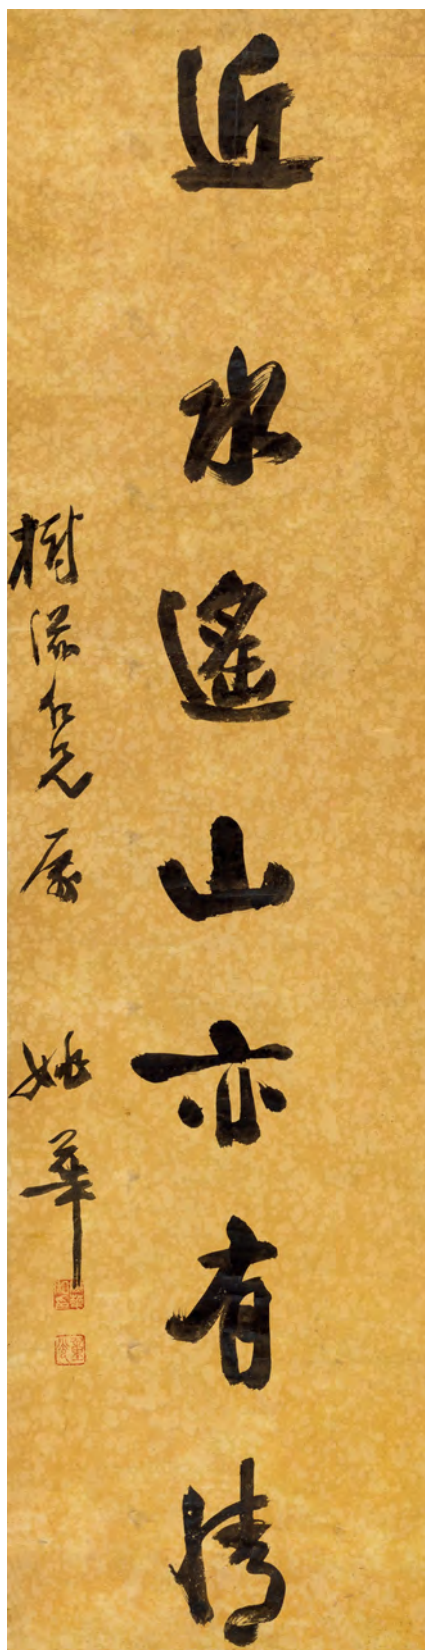 近水遙山亦有情
樹滋仁兄屬
姚華